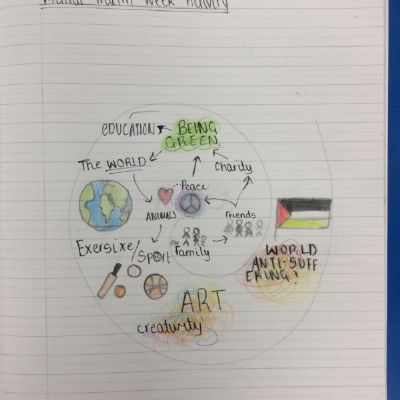 Mental Health Week Activity
EDUCATION
BEING
GREEN
The WORLD
Charity
Peace
ANIMALS
Friends
Exersise/
Sport
Family
WORLD
ANTI-SUFF
ERING!
ART
creativity